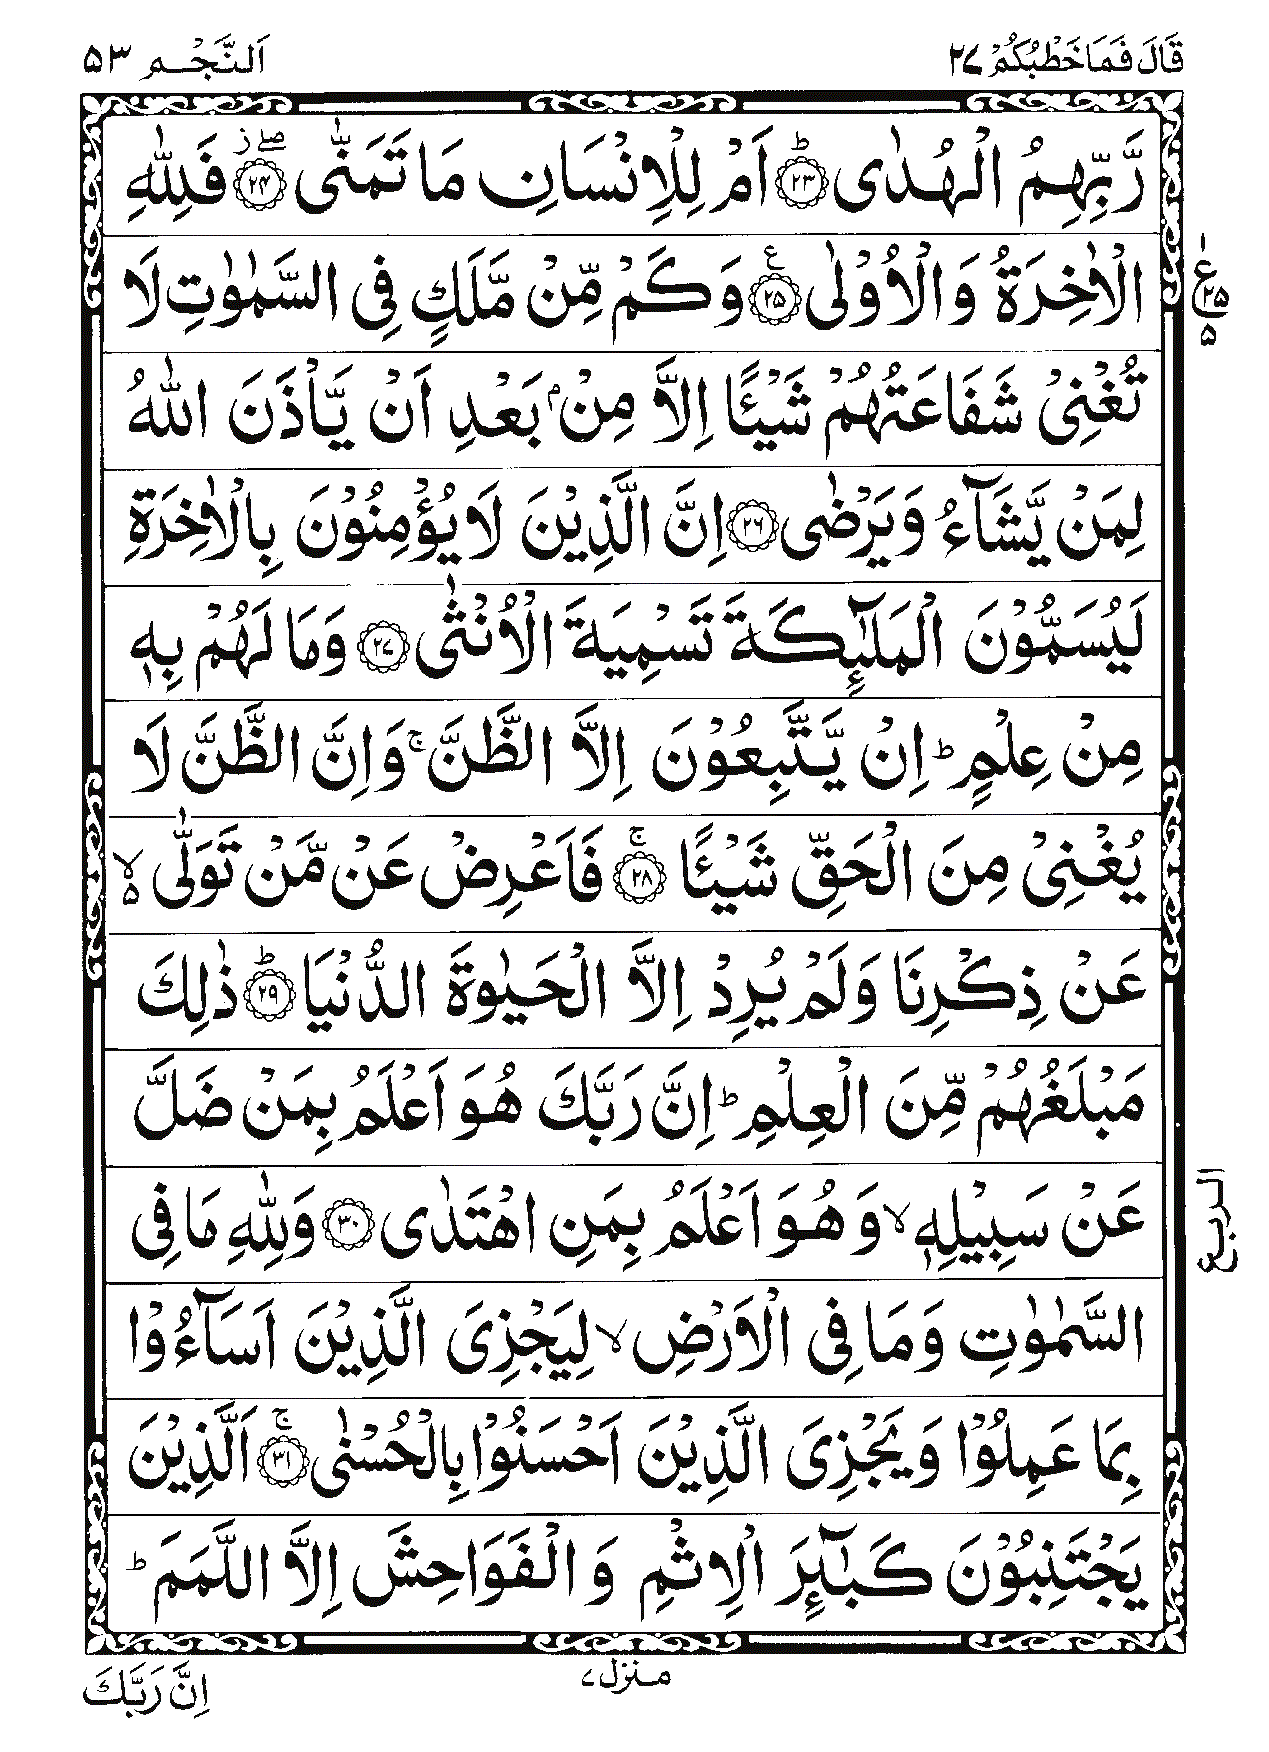 قَالَ فَمَا خَطْبُكُمْ ۲۷ اَلنَّجْم ۵۳
رَّبِّهِمُ الْهُدٰى ؕ‏ ﴿۲۳﴾ اَمْ لِلْاِنْسَانِ مَا تَمَنّٰى ۖ ز ﴿۲۴﴾ فَلِلّٰهِ
الْاٰخِرَةُ وَالْاُوْلٰى ﴿۲۵﴾ ع وَكَمْ مِّنْ مَّلَكٍ فِى السَّمٰوٰتِ لَا
- ع ۲۵ ۵
تُغْنِىْ شَفَاعَتُهُمْ شَيْئًا اِلَّا مِنْۢ بَعْدِ اَنْ يَّاْذَنَ اللّٰهُ
لِمَنْ يَّشَآءُ وَيَرْضٰى ﴿۲۶﴾ اِنَّ الَّذِيْنَ لَا يُؤْمِنُوْنَ بِالْاٰخِرَةِ
لَيُسَمُّوْنَ الْمَلٰٓئِكَةَ تَسْمِيَةَ الْاُنْثٰى ﴿۲۷﴾ وَمَا لَهُمْ بِهٖ
مِنْ عِلْمٍ ؕ اِنْ يَّتَّبِعُوْنَ اِلَّا الظَّنَّ ۚ وَاِنَّ الظَّنَّ لَا
يُغْنِىْ مِنَ الْحَقِّ شَيْئًا ۚ ﴿۲۸﴾ فَاَعْرِضْ عَنْ مَّنْ تَوَلّٰى ۙ ۵
عَنْ ذِكْرِنَا وَلَمْ يُرِدْ اِلَّا الْحَيٰوةَ الدُّنْيَا ؕ ﴿۲۹﴾ ذٰلِكَ
مَبْلَغُهُمْ مِّنَ الْعِلْمِ ؕ اِنَّ رَبَّكَ هُوَ اَعْلَمُ بِمَنْ ضَلَّ
عَنْ سَبِيْلِهٖ ۙ وَهُوَ اَعْلَمُ بِمَنِ اهْتَدٰى ﴿۳۰﴾ وَلِلّٰهِ مَا فِى
الربع
السَّمٰوٰتِ وَمَا فِى الْاَرْضِ ۙ لِيَجْزِىَ الَّذِيْنَ اَسَآءُوْا
بِمَا عَمِلُوْا وَيَجْزِىَ الَّذِيْنَ اَحْسَنُوْا بِالْحُسْنٰى ۚ ﴿۳۱﴾ اَلَّذِيْنَ
يَجْتَنِبُوْنَ كَبٰٓئِرَ الْاِثْمِ وَالْفَوَاحِشَ اِلَّا اللَّمَمَ ؕ
منزل ۷
اِنَّ رَبَّكَ